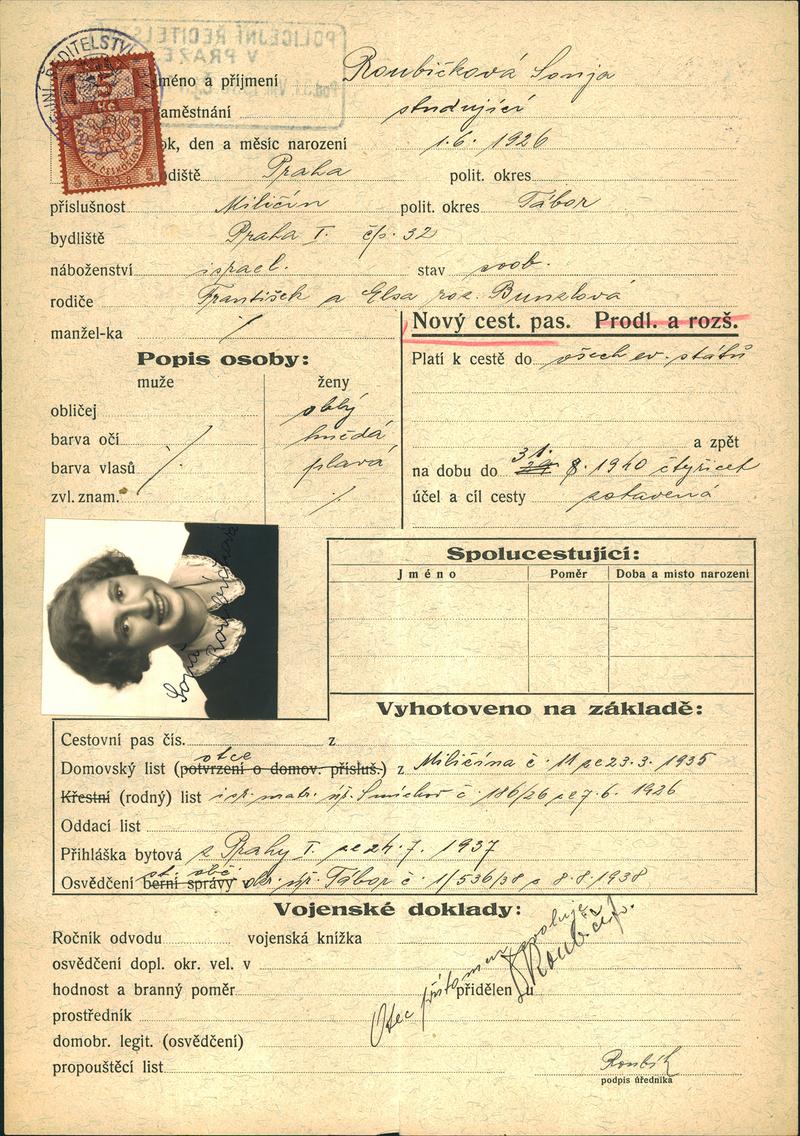 POLICEJNÍ ŘEDITELSTVÍ
V PRAZE
Jméno a příjmení Roubíčková Sonja
zaměstnání studující
rok, den a měsíc narození 1.6. 1926
Praha polit. okres
příslušnost Miličín polit. okres Tábor
bydliště Praha I. čp. 32
náboženství israel. stav svob.
rodiče František a Elsa roz. Bunzlová
manžel-ka /
Nový cest. pas. Prodl. a rozš.
Popis osoby:
muže ženy
obličej oblý
barva očí hnědá
barva vlasů / plavá
zvl. znam. /.
Platí k cestě do všech ev. států
a zpět
na dobu do 31. 8. 1940 čtyřicet
účel a cíl cesty zotavená
Sonja Roubíčková
Spolucestující:
Jméno Poměr Doba a místo narození
Vyhotoveno na základě:
Cestovní pas čís. z
otce
Domovský list (potvrzení o domov. přísluš.) z Miličína č. 11 ze 23.3. 1935
Křestní (rodný) list isr. matr. úř. Smíchov č. 186/26 ze 7.6. 1926
Oddací list
Přihláška bytová z Prahy I. ze 24.7. 1937
st. obč.
Osvědčení berní správy okr. úř. Tábor č. 1/536/38 z 8.8.1938
Vojenské doklady:
Ročník odvodu vojenská knížka
osvědčení dopl. okr. vel. v
hodnost a branný poměr přidělen u
Otec přítomen, svoluje
prostředník
domobr. legit. (osvědčení)
propouštěcí list
podpis úředníka